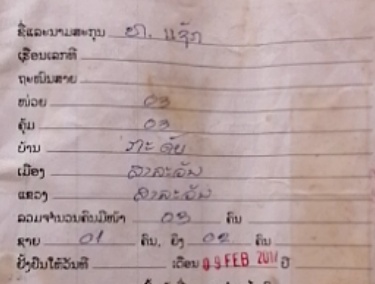 ຊື່ແລະນາມສະກຸນ ຍາ. ແຊັກ
ເຮືອນເລກທີ
ຖະໜົນສາຍ
ໜ່ວຍ 03
ຄຸ້ມ 03
ບ້ານ ກະ ດັບ
ເມືອງ ສາລະວັນ
ແຂວງ ສາລະວັນ
ລວມຈຳນວນຄົນມີໜ້າ 03 ຄົນ
ຊາຍ 01 ຄົນ, ຍິງ 02 ຄົນ
ຍັ້ງຢືນໃຫ້ວັນທີ ເດືອນ 09 FEB 201 ປີ